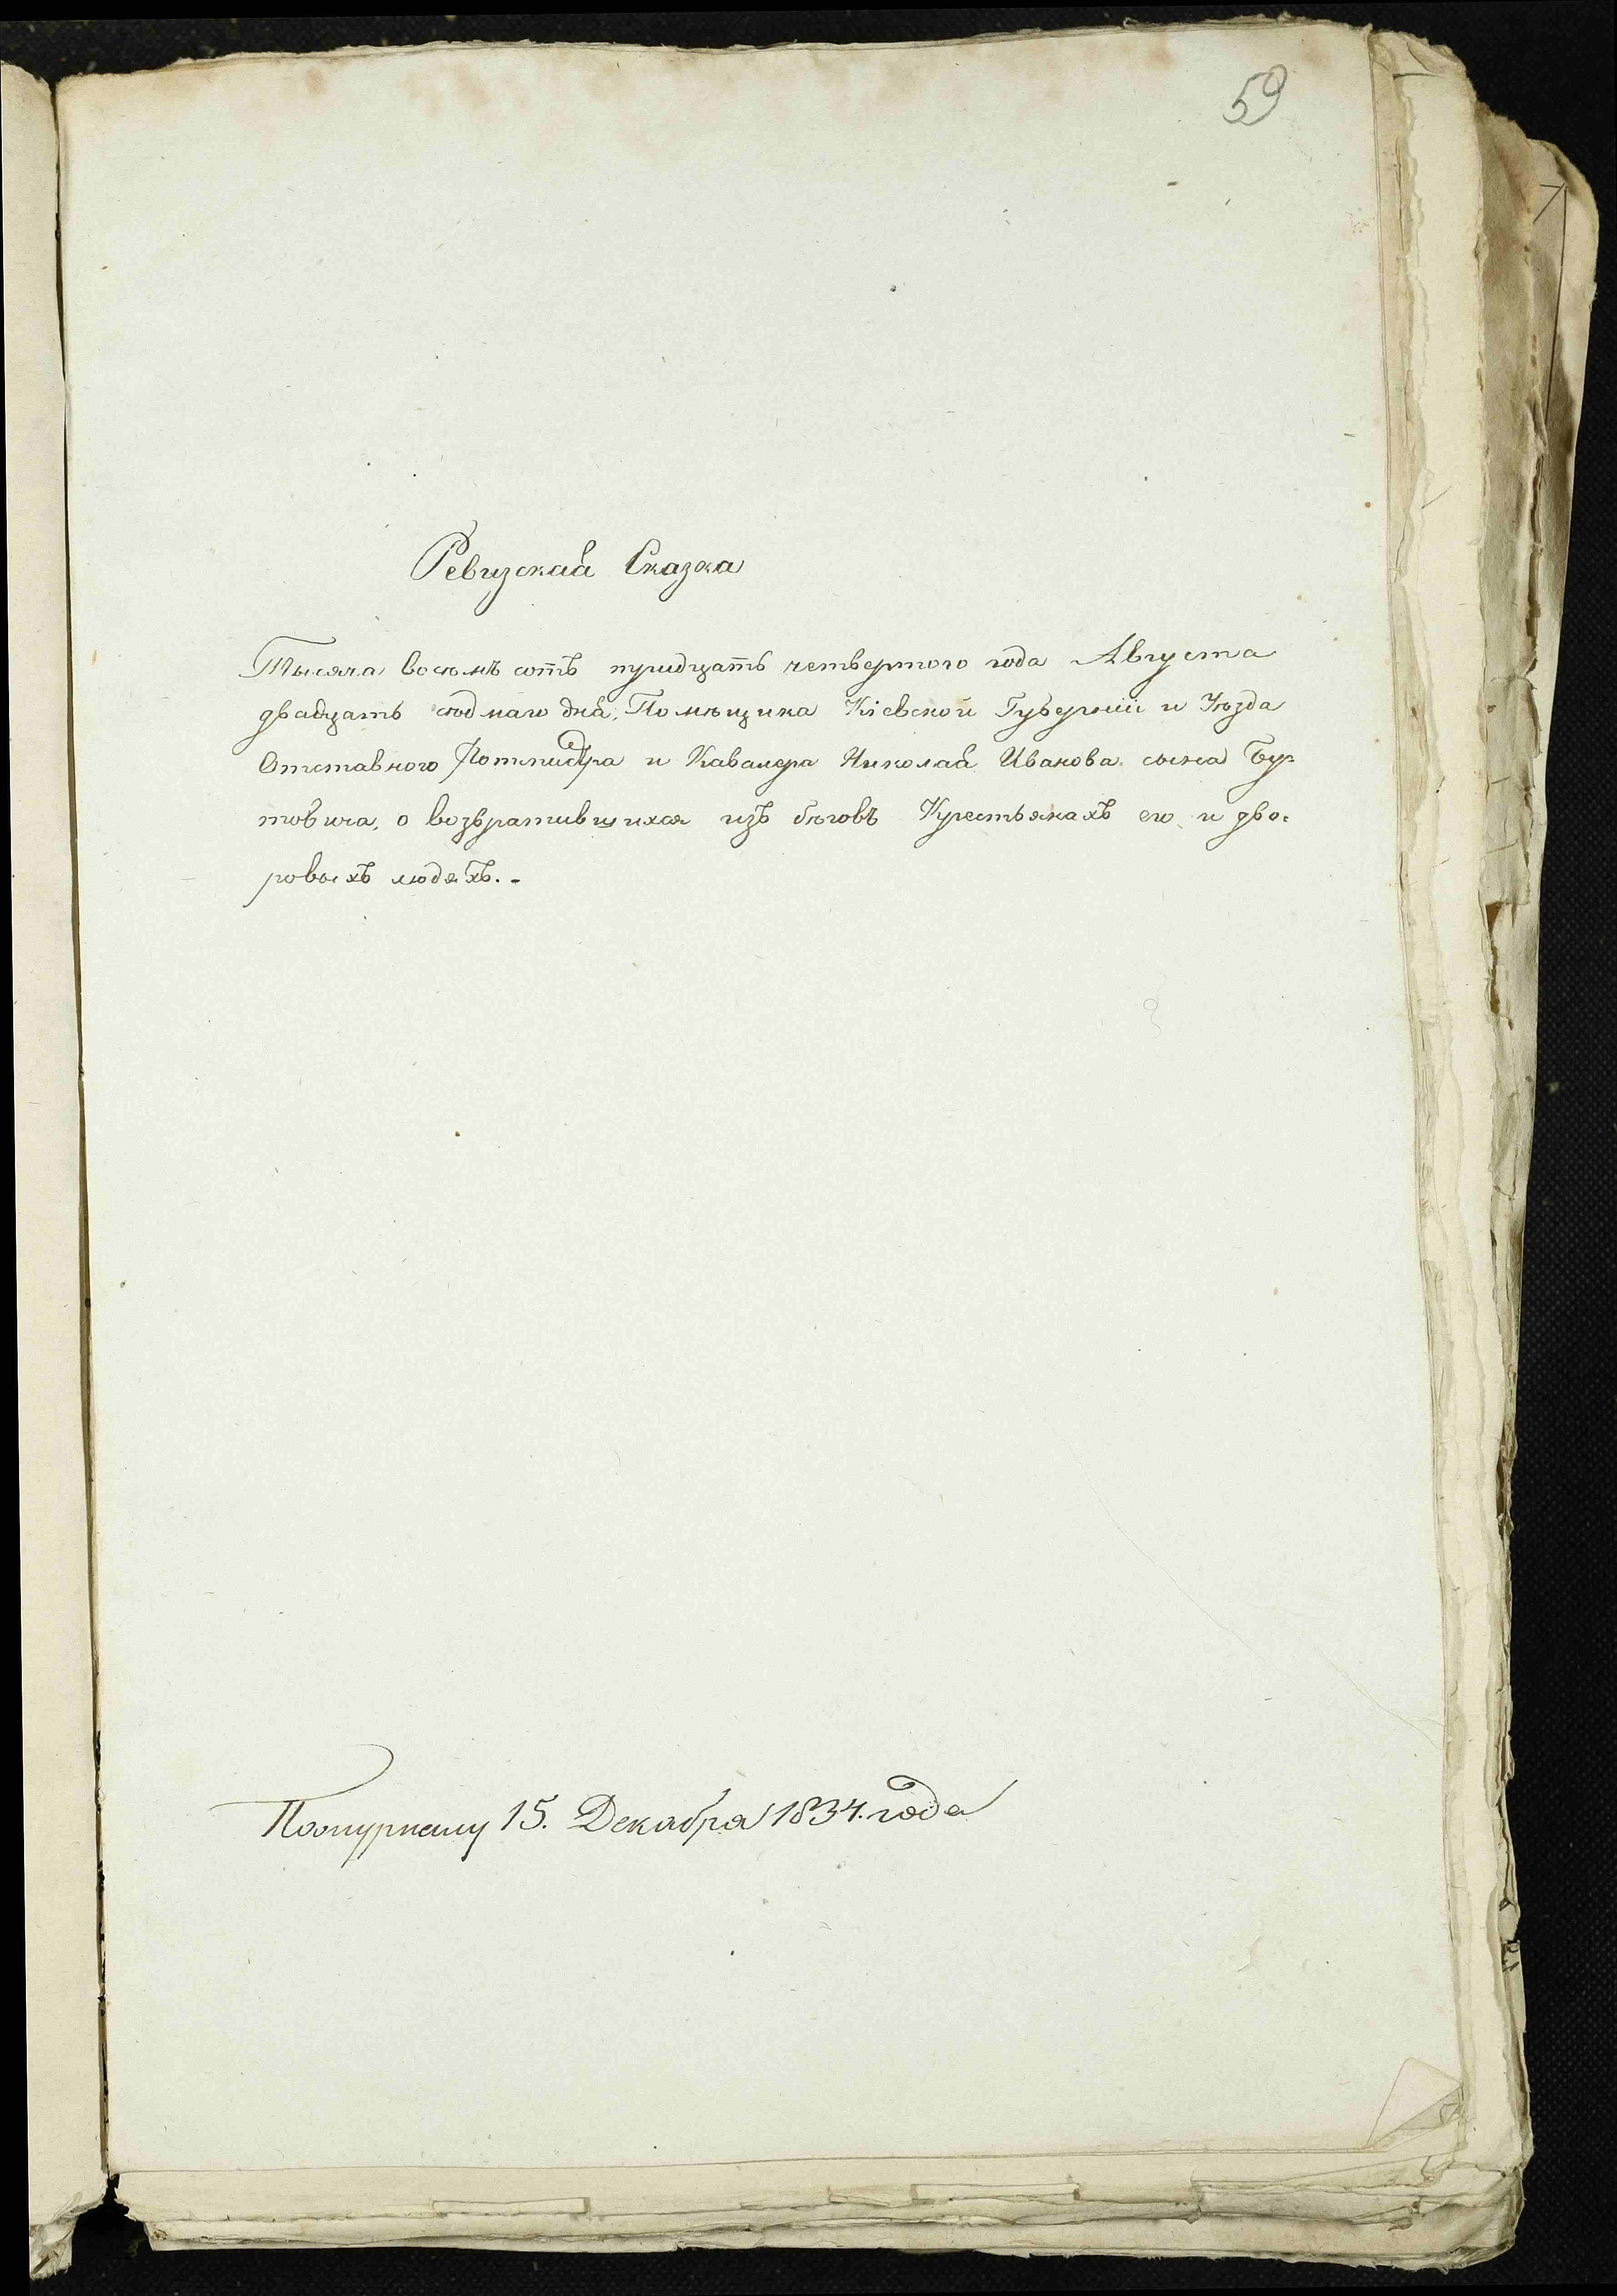 59
Ревизская Сказка
Тысяча восемъ сотъ тридцать четвертого года Августа
двадцать седмаго дня, Помѣщика Кіевской Губерніи и Уѣзда
Отставного Ротмистра и Кавалера Николая Иванова сына Бу-
товича, о возвратившихся изъ бѣговъ Крестьянахъ его и дво-
ровыхъ людяхъ.-
15. Декабря 1834. года